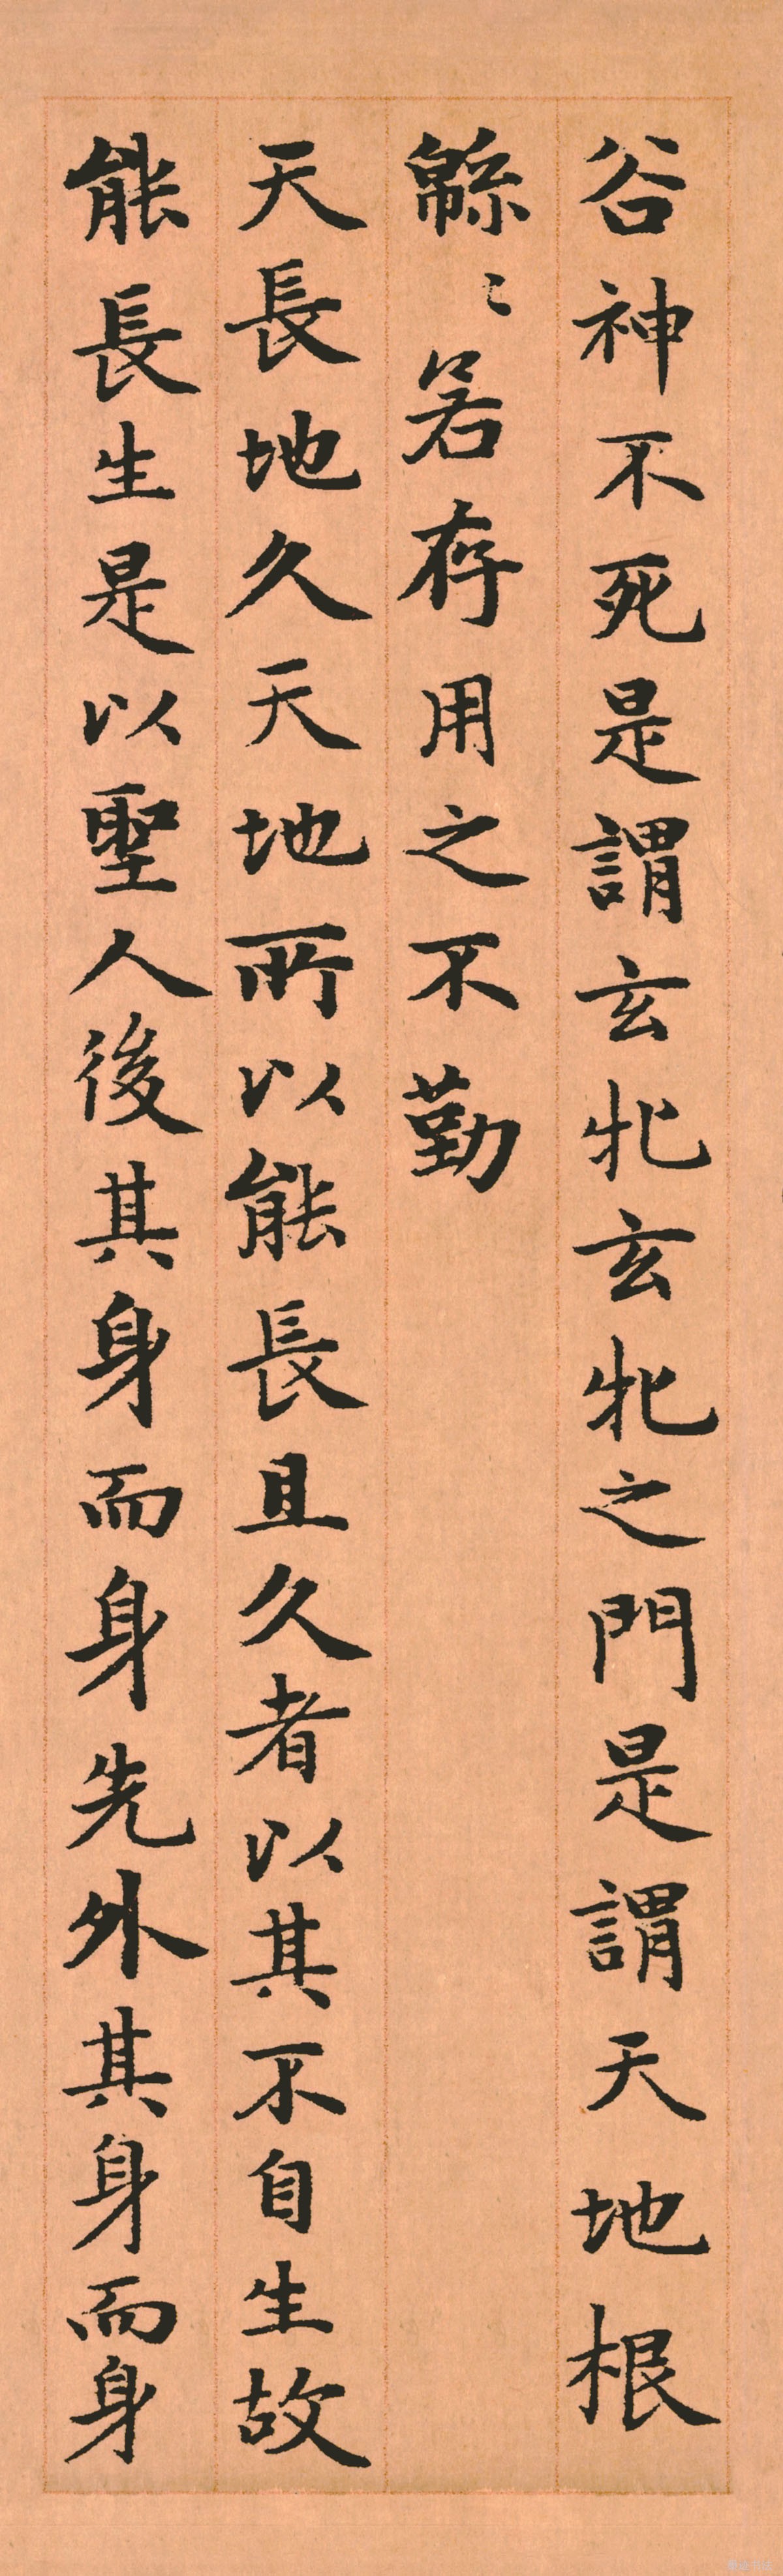 谷神不死是謂玄牝玄牝之門是謂天地根
緜〻若存用之不勤
天長地久天地所以能長且久者以其不自生故
能長生是以聖人後其身而身先外其身而身